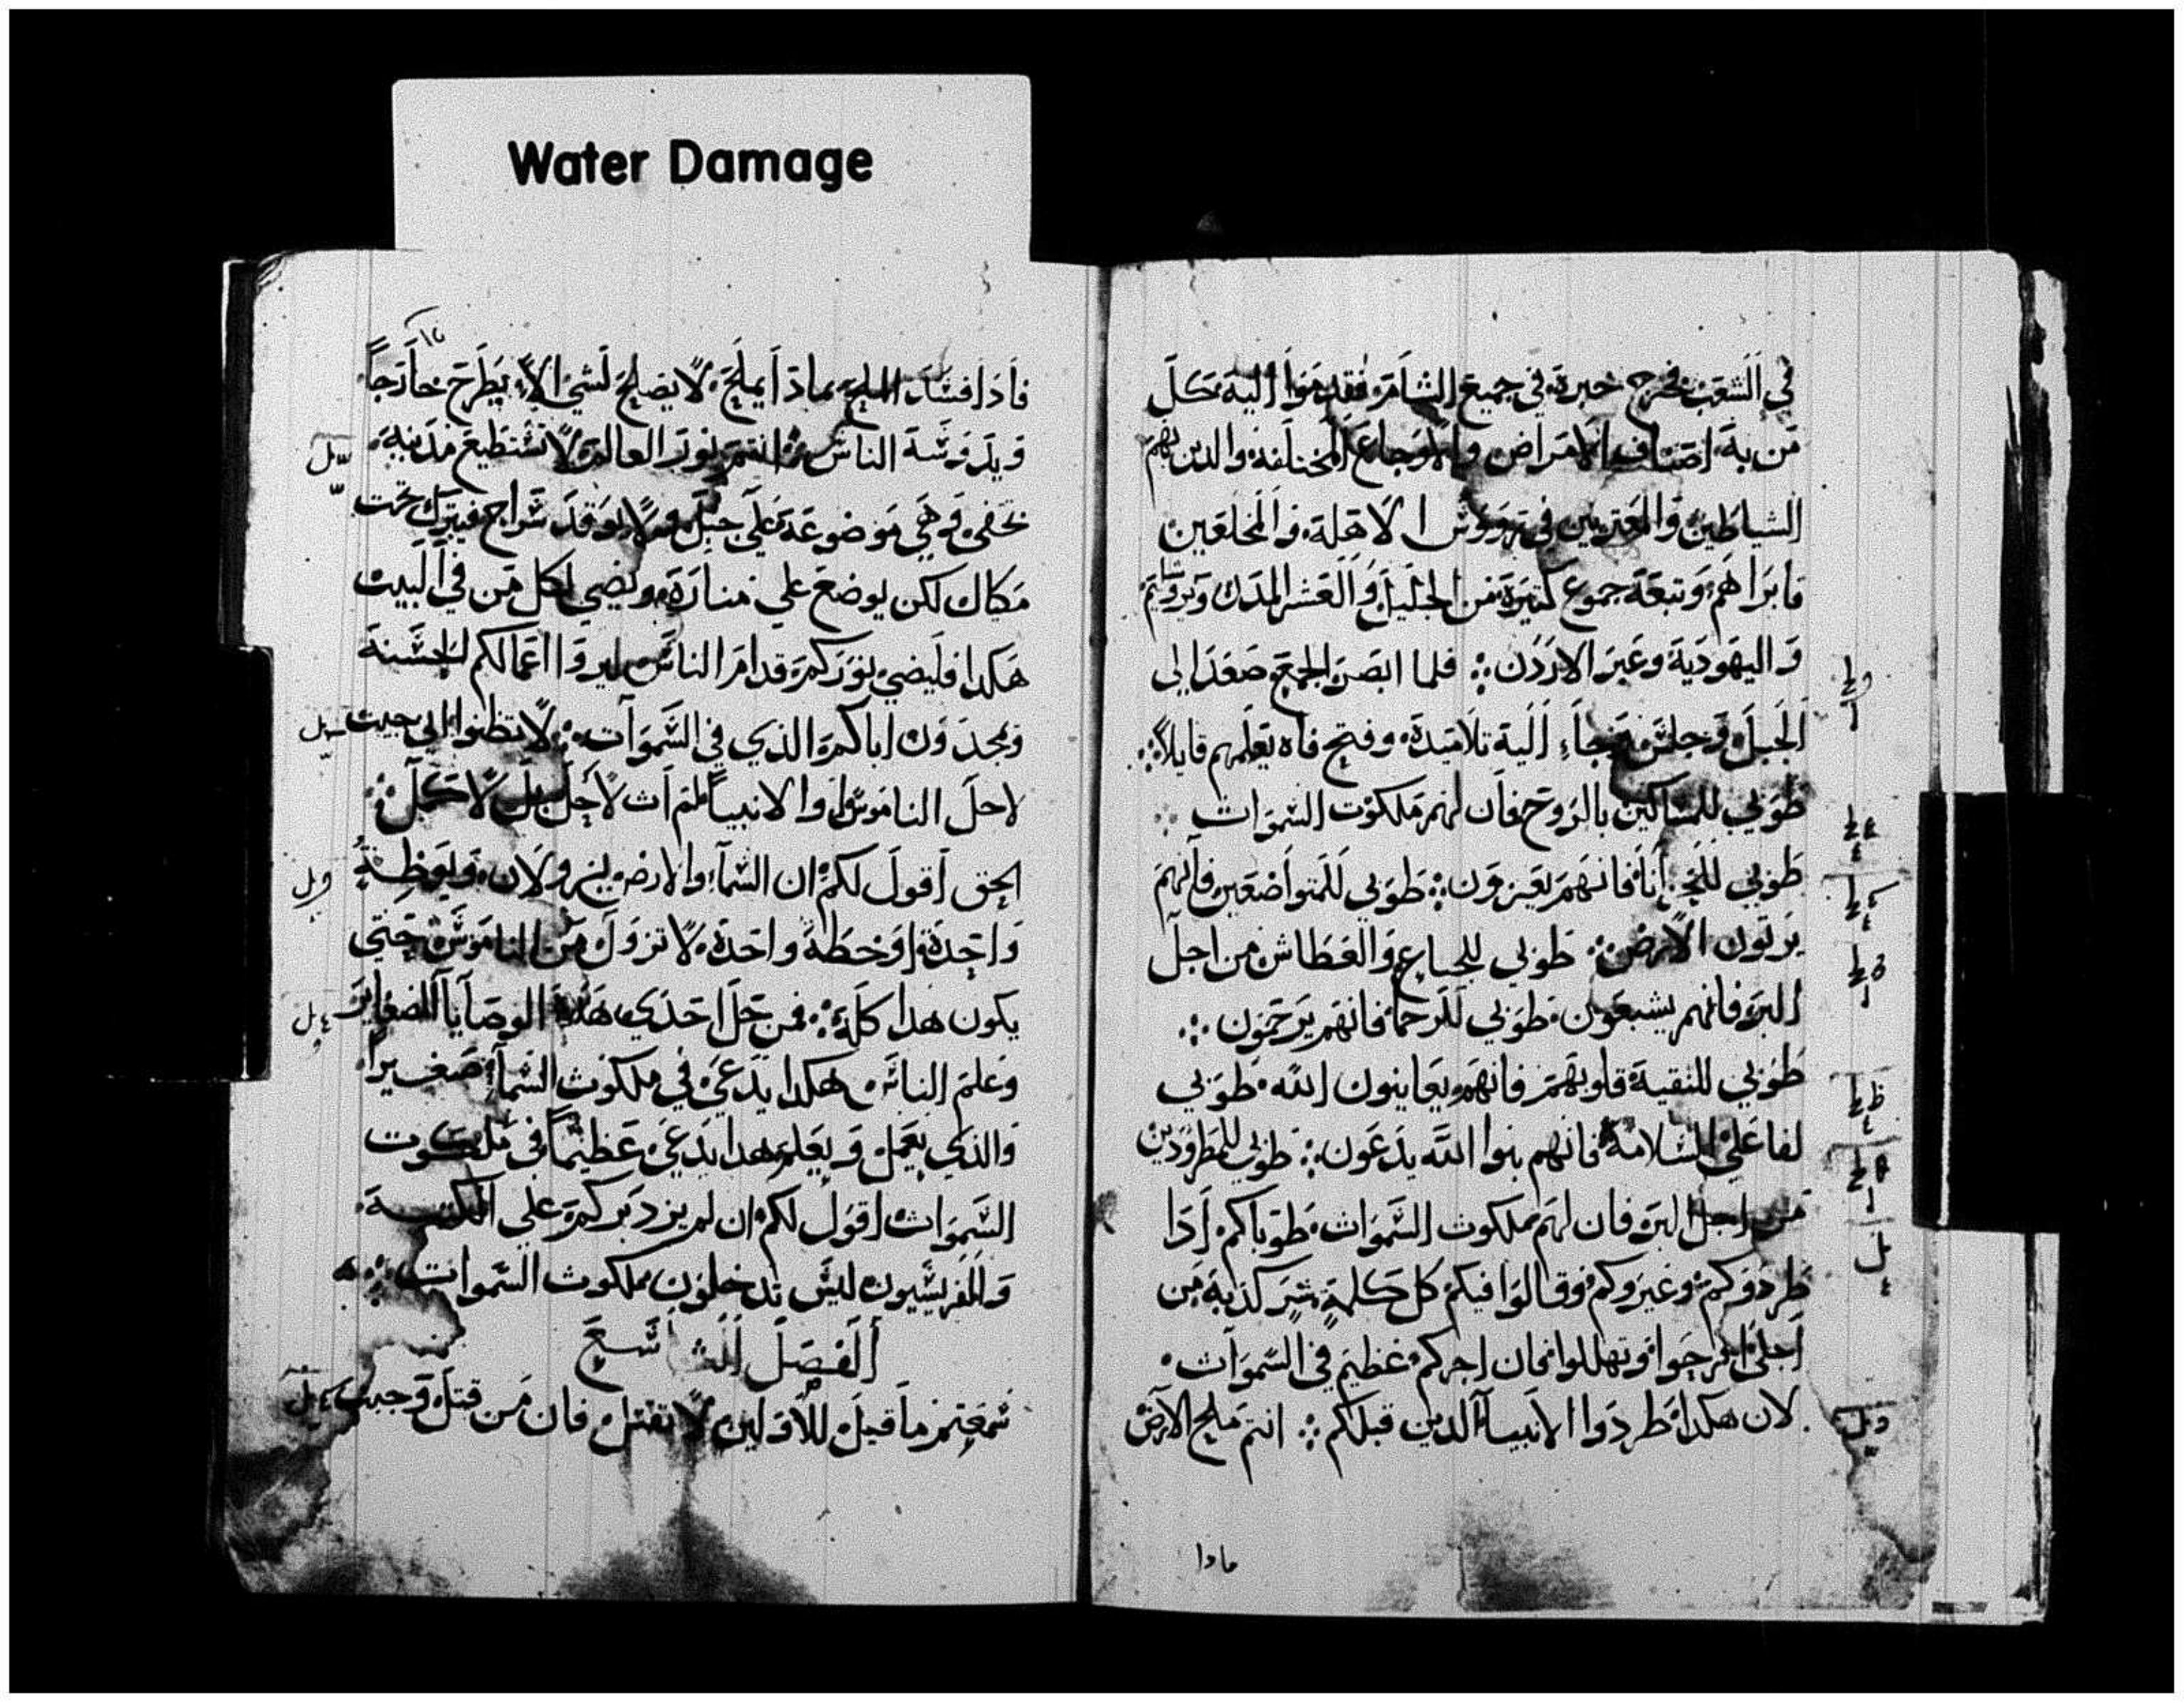 Water Damage
في الشعب فخرج خبرة في جميع الشام فقدموا اليه كل
من به اصناف الامراض والاوجاع المختلفة والدين بهم
الشياطين والمعتريين في رووس الاهلة والمخلعين
فابراهم وتبعه جموع كتيرة من الجليل والعشر المدن ويروشليم
واليهودية وعبر الاردن فلما ابصر الجمع صعد الي
الجبل وجلس جاء اليه تلاميدة وفتح فاه يعلمهم قايلاً
طوبي للمساكين بالروح فان لهم ملكوت السموات
طوبي للحزانا فانهم يعزون طوبي للمتواضعين فانهم
يرتون الارض طوبي للجياع والعطاش من اجل
البر فانهم يشبعون طوبي للرحما فانهم يرحمون
طوبي للنقية قلوبهم فانهم يعاينون الله طوبي
لفاعلي السلامة فانهم بنوا الله يدعون طوبي للمطرودين
من اجل البر فان لهم ملكوت السموات طوباكم ادا
طردوكم وعيروكم وقالوا فيكم كل كلمة شر كدبة من
اجلي افرحوا وتهللوا فان اجركم عظيم في السموات
لان هكدا طردوا الانبيا الدين قبلكم انتم ملح الارض
فادا فسد الملح بمادا يملح لا يصلح لشي الا يطرح خارجاً
ويدوسه الناس انتم نور العالم لا تستطيع مدينة
تخفي وهي موضوعة علي جبل ولا يوقد سراج فيترك تحت
مكيال لكن يوضع علي منارة ويضي لكل من في البيت
هكدا فليضي نوركم قدام الناس ليروا اعمالكم الحسنة
ويمجدون اباكم الذي في السموات لا تظنوا اني جيت
لاحل الناموس او الانبيا لم ات لاحل بل لاكمل
الحق اقول لكم ان السماء والارض يزولان ويوظة
واحدة او خطة واحدة لا تزول من الناموس حتي
يكون هدا كله فمن حل احدي هده الوصايا الصغاير
وعلم الناس هكدا يدعي في ملكوت السما صغيرا
والذي يعمل ويعلم هدا يدعي عظيماً في ملكوت
السموات اقول لكم ان لم يزد بركم علي الكتبة
والفريسيون ليس تدخلون ملكوت السموات
الفصل التاسع
سمعتم ما قيل للاولين لا تقتل فان من قتل وجبت